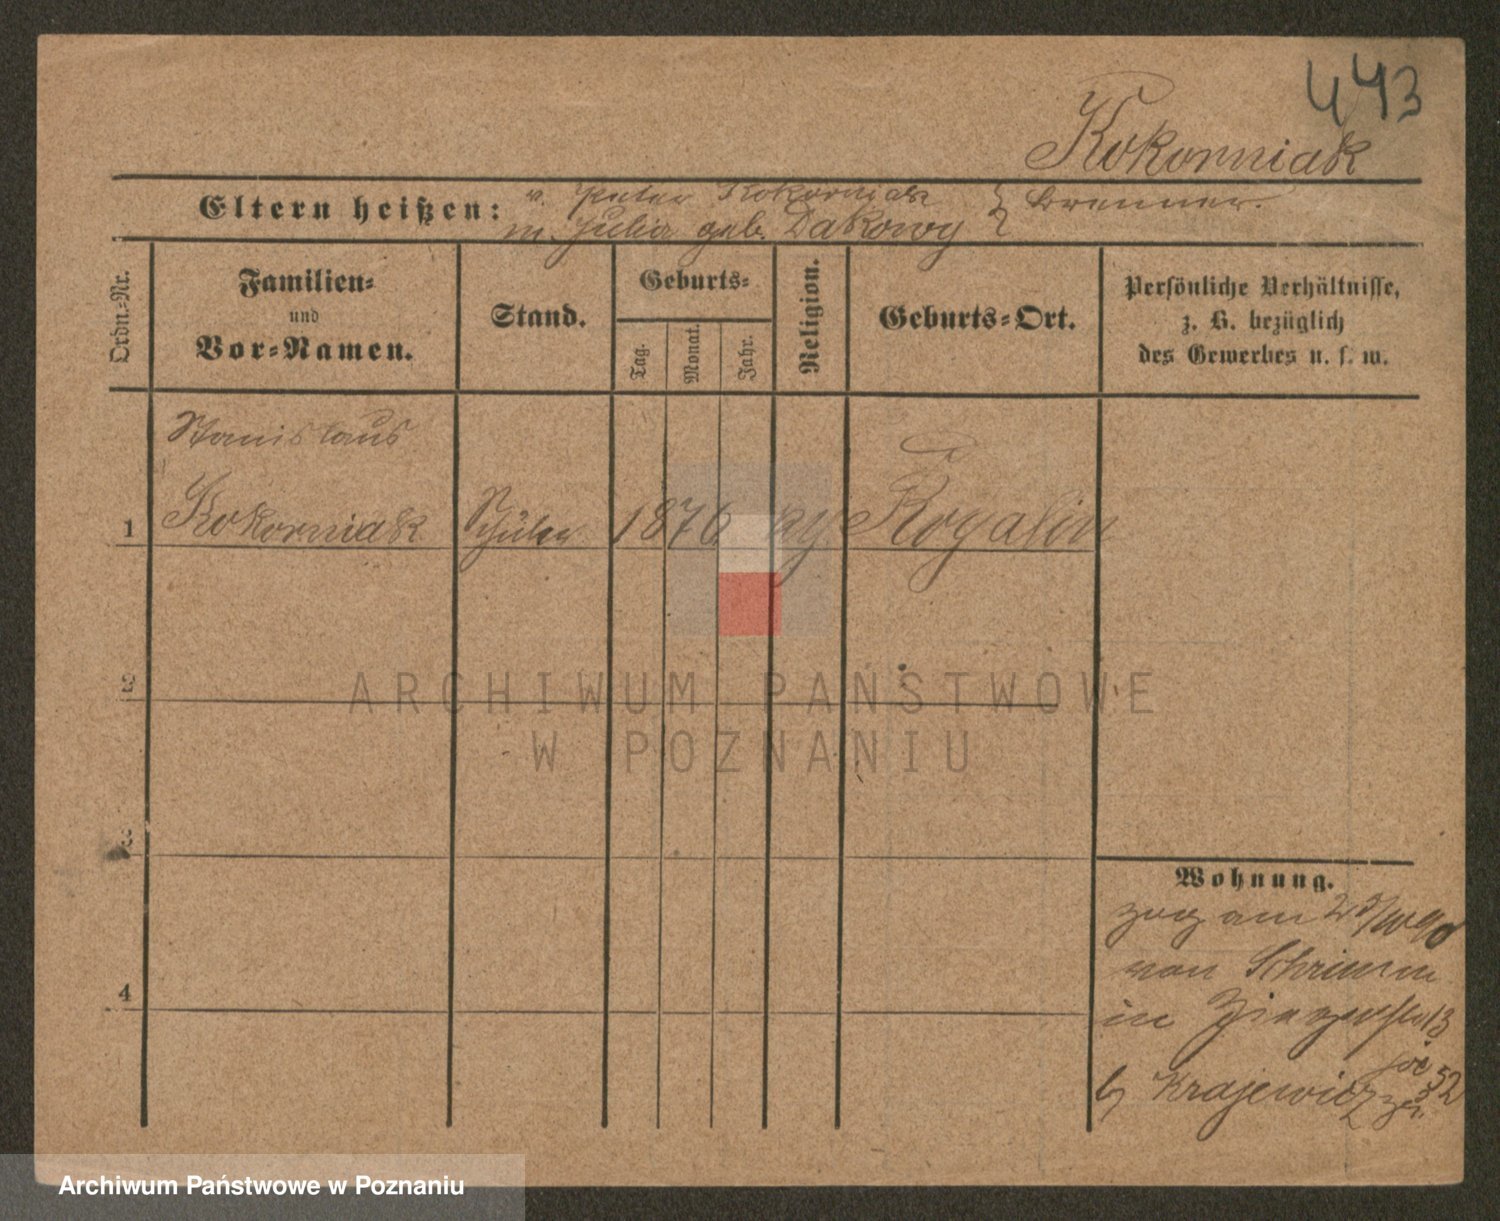 443
Kokorniak
Eltern heißen: v. Peter Kokorniak
m. Julia geb. Dakowy } Brenner.
Ordn.-Nr.
Familien-
und
Vor-Namen.
Stand.
Geburts-
Tag.
Monat.
Jahr.
Religion.
Geburts-Ort.
Persönliche Verhältnisse,
z. B. bezüglich
des Gewerbes u. s. w.
Stanislaus
1 Kokorniak Schüler 1876 Rogalin
2
ARCHIWUM PAŃSTWOWE
W POZNANIU
3
Wohnung.
zog am
von Schrimm
4
in 13
Krajewicz
52
Archiwum Państwowe w Poznaniu